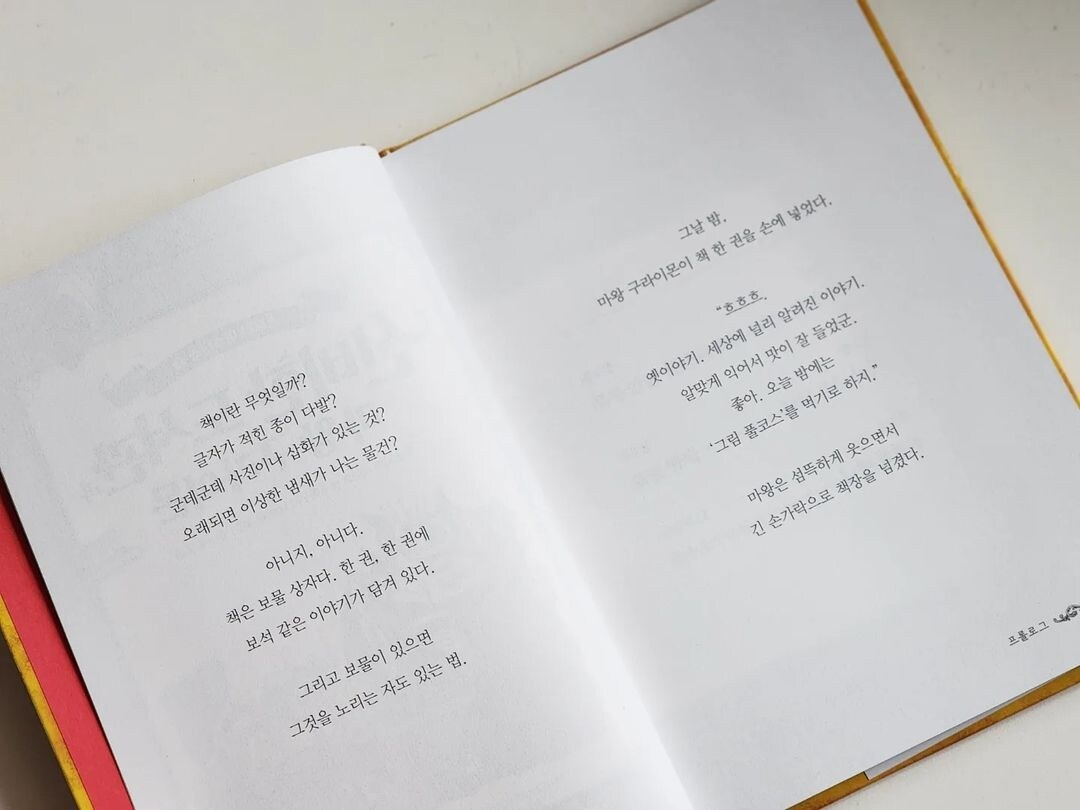 책이란 무엇일까?
글자가 적힌 종이 다발?
군데군데 사진이나 삽화가 있는 것?
오래되면 이상한 냄새가 나는 물건?
아니지, 아니다.
책은 보물 상자다. 한 권, 한 권에
보석 같은 이야기가 담겨 있다.
그리고 보물이 있으면
그것을 노리는 자도 있는 법.
그날 밤.
마왕 구라이몬이 책 한 권을 손에 넣었다.
“흐흐흐.
옛이야기. 세상에 널리 알려진 이야기.
알맞게 익어서 맛이 잘 들었군.
좋아. 오늘 밤에는
‘그림 풀코스’를 먹기로 하지.”
마왕은 섬뜩하게 웃으면서
긴 손가락으로 책장을 넘겼다.
프롤로그